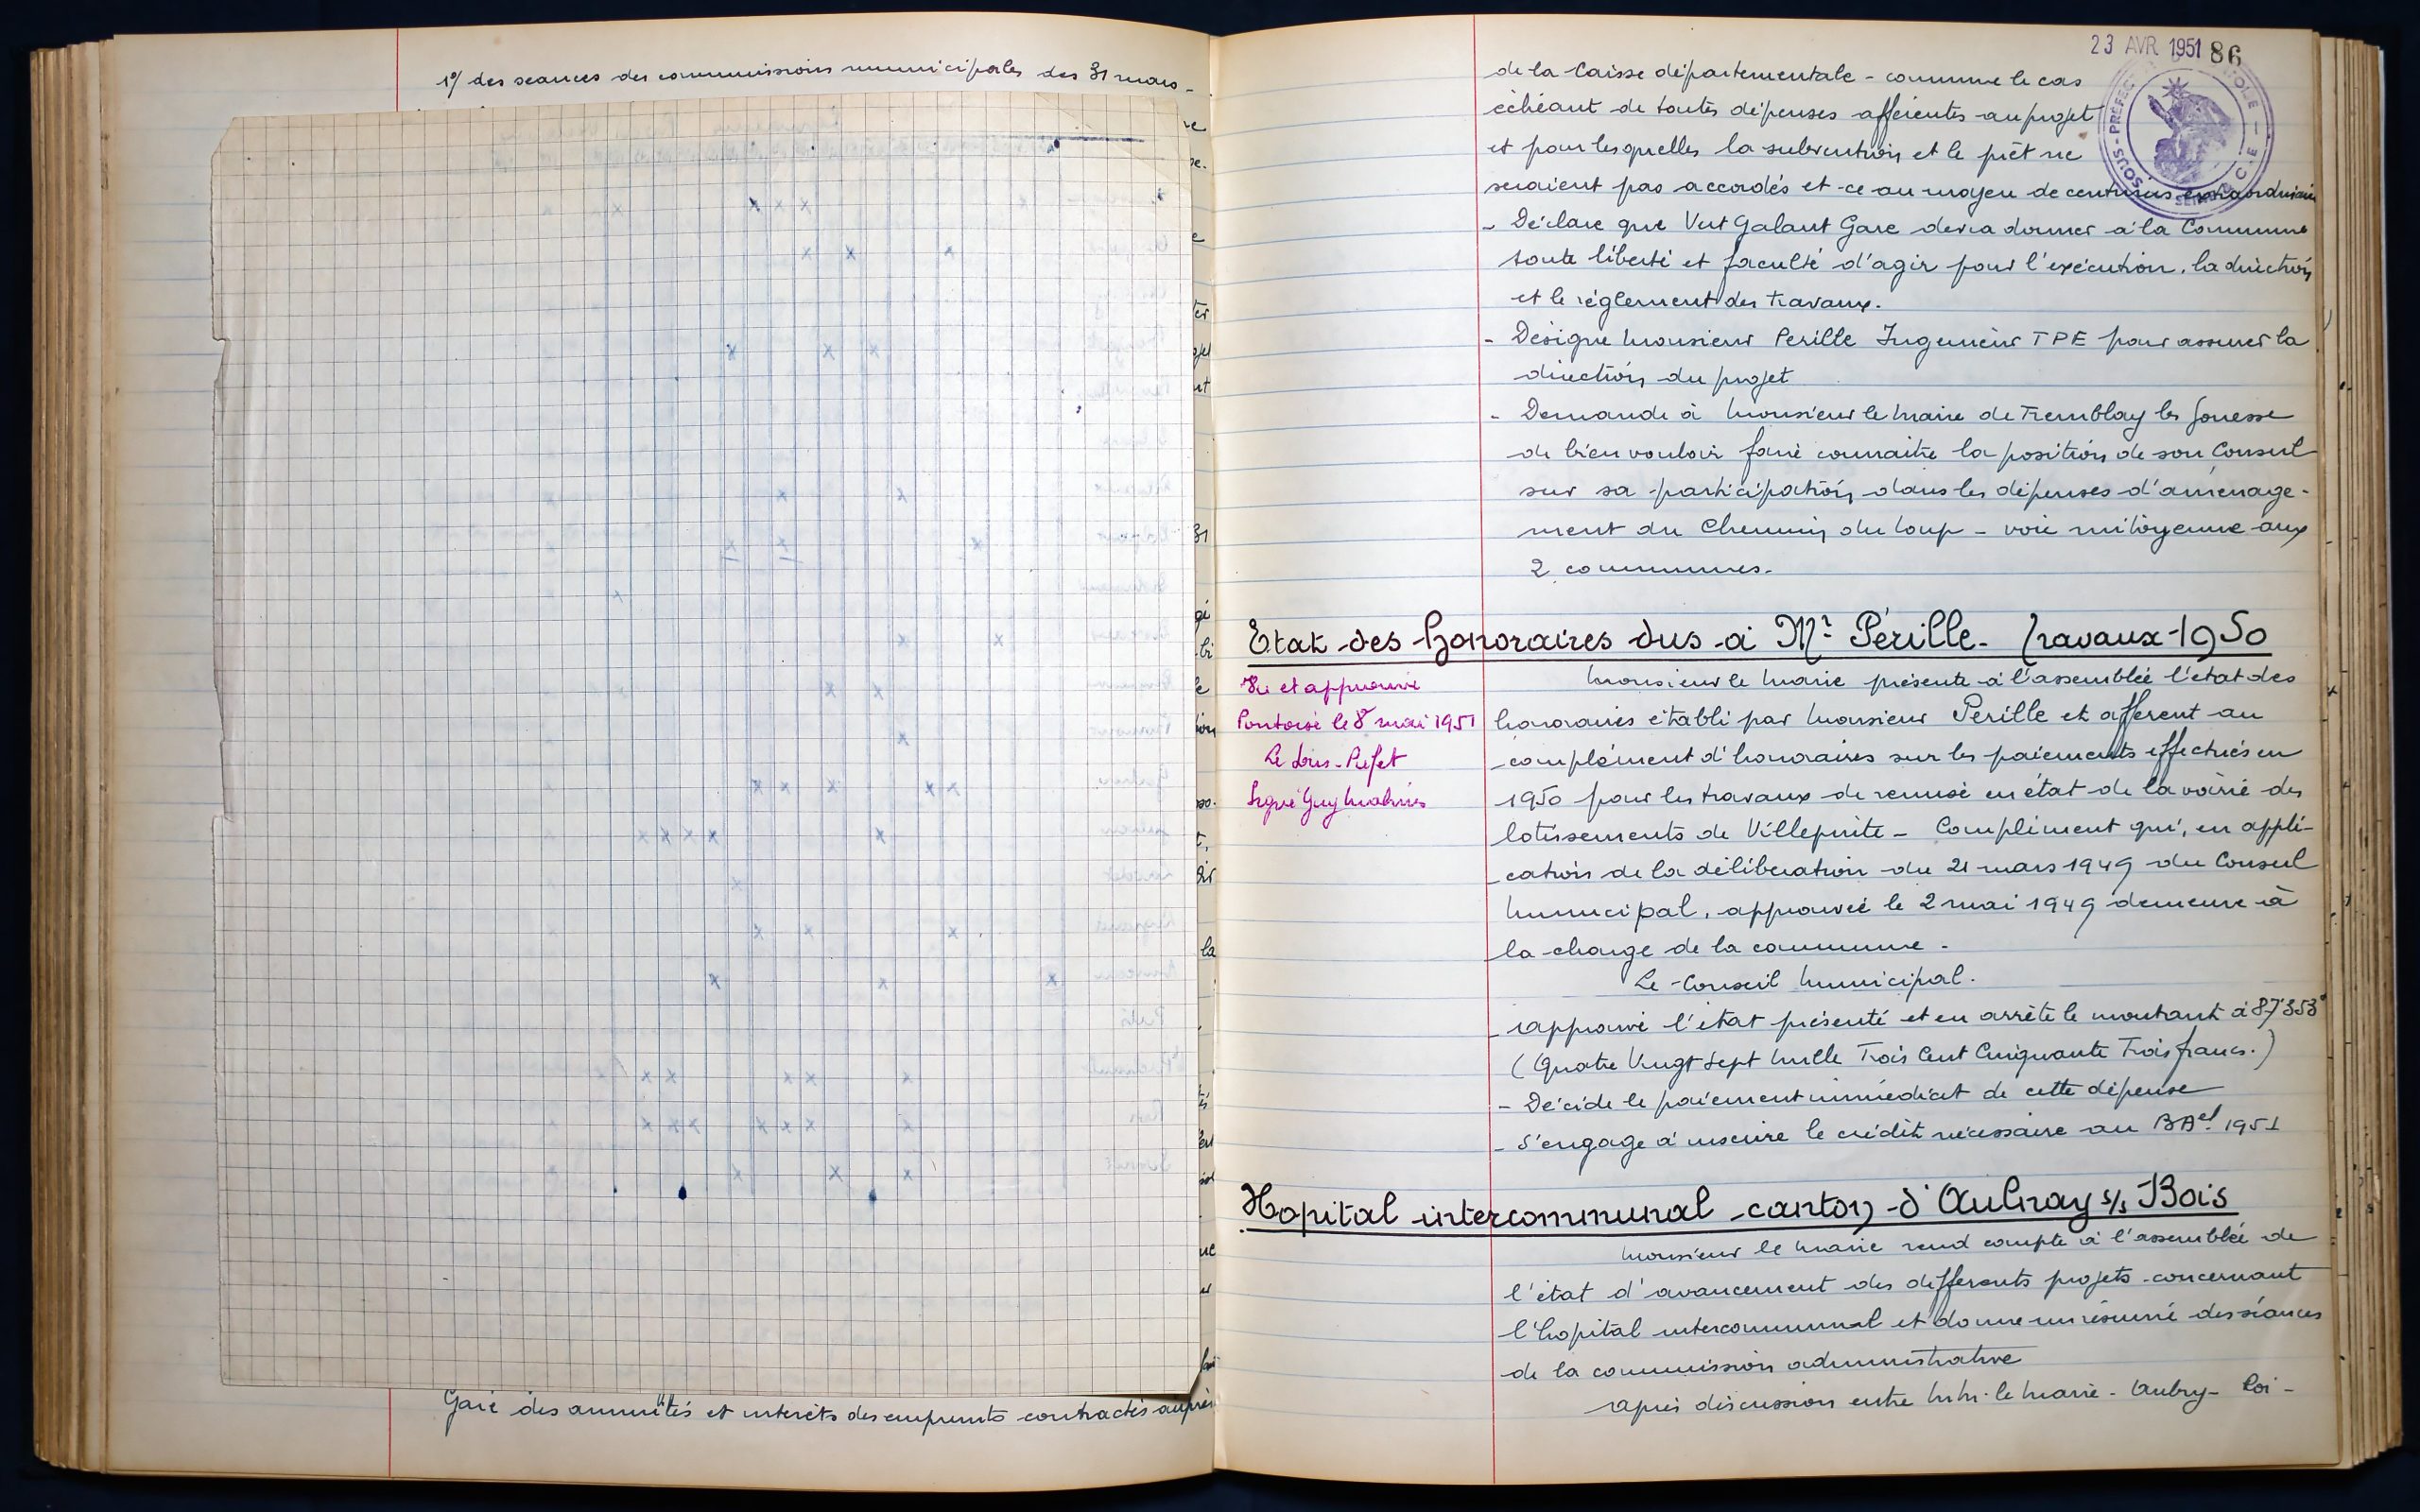 1°/ des séances des commissions municipales des 31 mars -
31
la
Gare des annuités et intérêts des emprunts contractés auprès
23 AVR 1951 86
SOUS-PRÉFEC
de la Caisse départementale - comme le cas
échéant de toutes dépenses afférentes au projet
et pour lesquelles la subvention et le prêt ne
seraient pas accordés et ce au moyen de centimes extraordinaires
- Déclare que Vert Galant Gare devra donner à la Commune
toute liberté et faculté d'agir pour l'exécution, la direction
et le réglement des travaux.
- Désigne Monsieur Perille Ingenieur TPE pour assurer la
direction du projet
- Demande à Monsieur le Maire de Tremblay les Gonesse
de bien vouloir faire connaitre la position de son Conseil
sur sa participation dans les dépenses d'aménage-
ment du Chemin du Loup - voie mitoyenne aux
2 communes.
Etat des honoraires dus à Mr Pérille - Travaux 1950
Vu et approuvé
Pontoise le 8 mai 1951
Le Sous-Préfet
Signé Guy
Monsieur le Maire présente à l'assemblée l'état des
honoraires établi par Monsieur Perille et afferent au
complément d'honoraires sur les paiements effectués en
1950 pour les travaux de remise en état de la voirie des
lotissements de Villepinte - Complément qui, en appli-
cation de la délibération du 21 mars 1949 du Conseil
Municipal, approuvée le 2 mai 1949 demeure à
la charge de la commune -
Le Conseil Municipal.
- approuve l'état présenté et en arrête le montant à 87353
(Quatre Vingt Sept Mille Trois Cent Cinquante Trois francs.)
- Décide le paiement immédiat de cette dépense
- S'engage à inscrire le crédit nécessaire au BAel 1951
Hopital intercommunal canton d'Aulnay s/s Bois
Monsieur le Maire rend compte à l'assemblée de
l'état d'avancement des differents projets concernant
l'hopital intercommunal et donne un résumé des séances
de la commission administrative
après discussion entre MM. le Maire - Aubry - Loi-